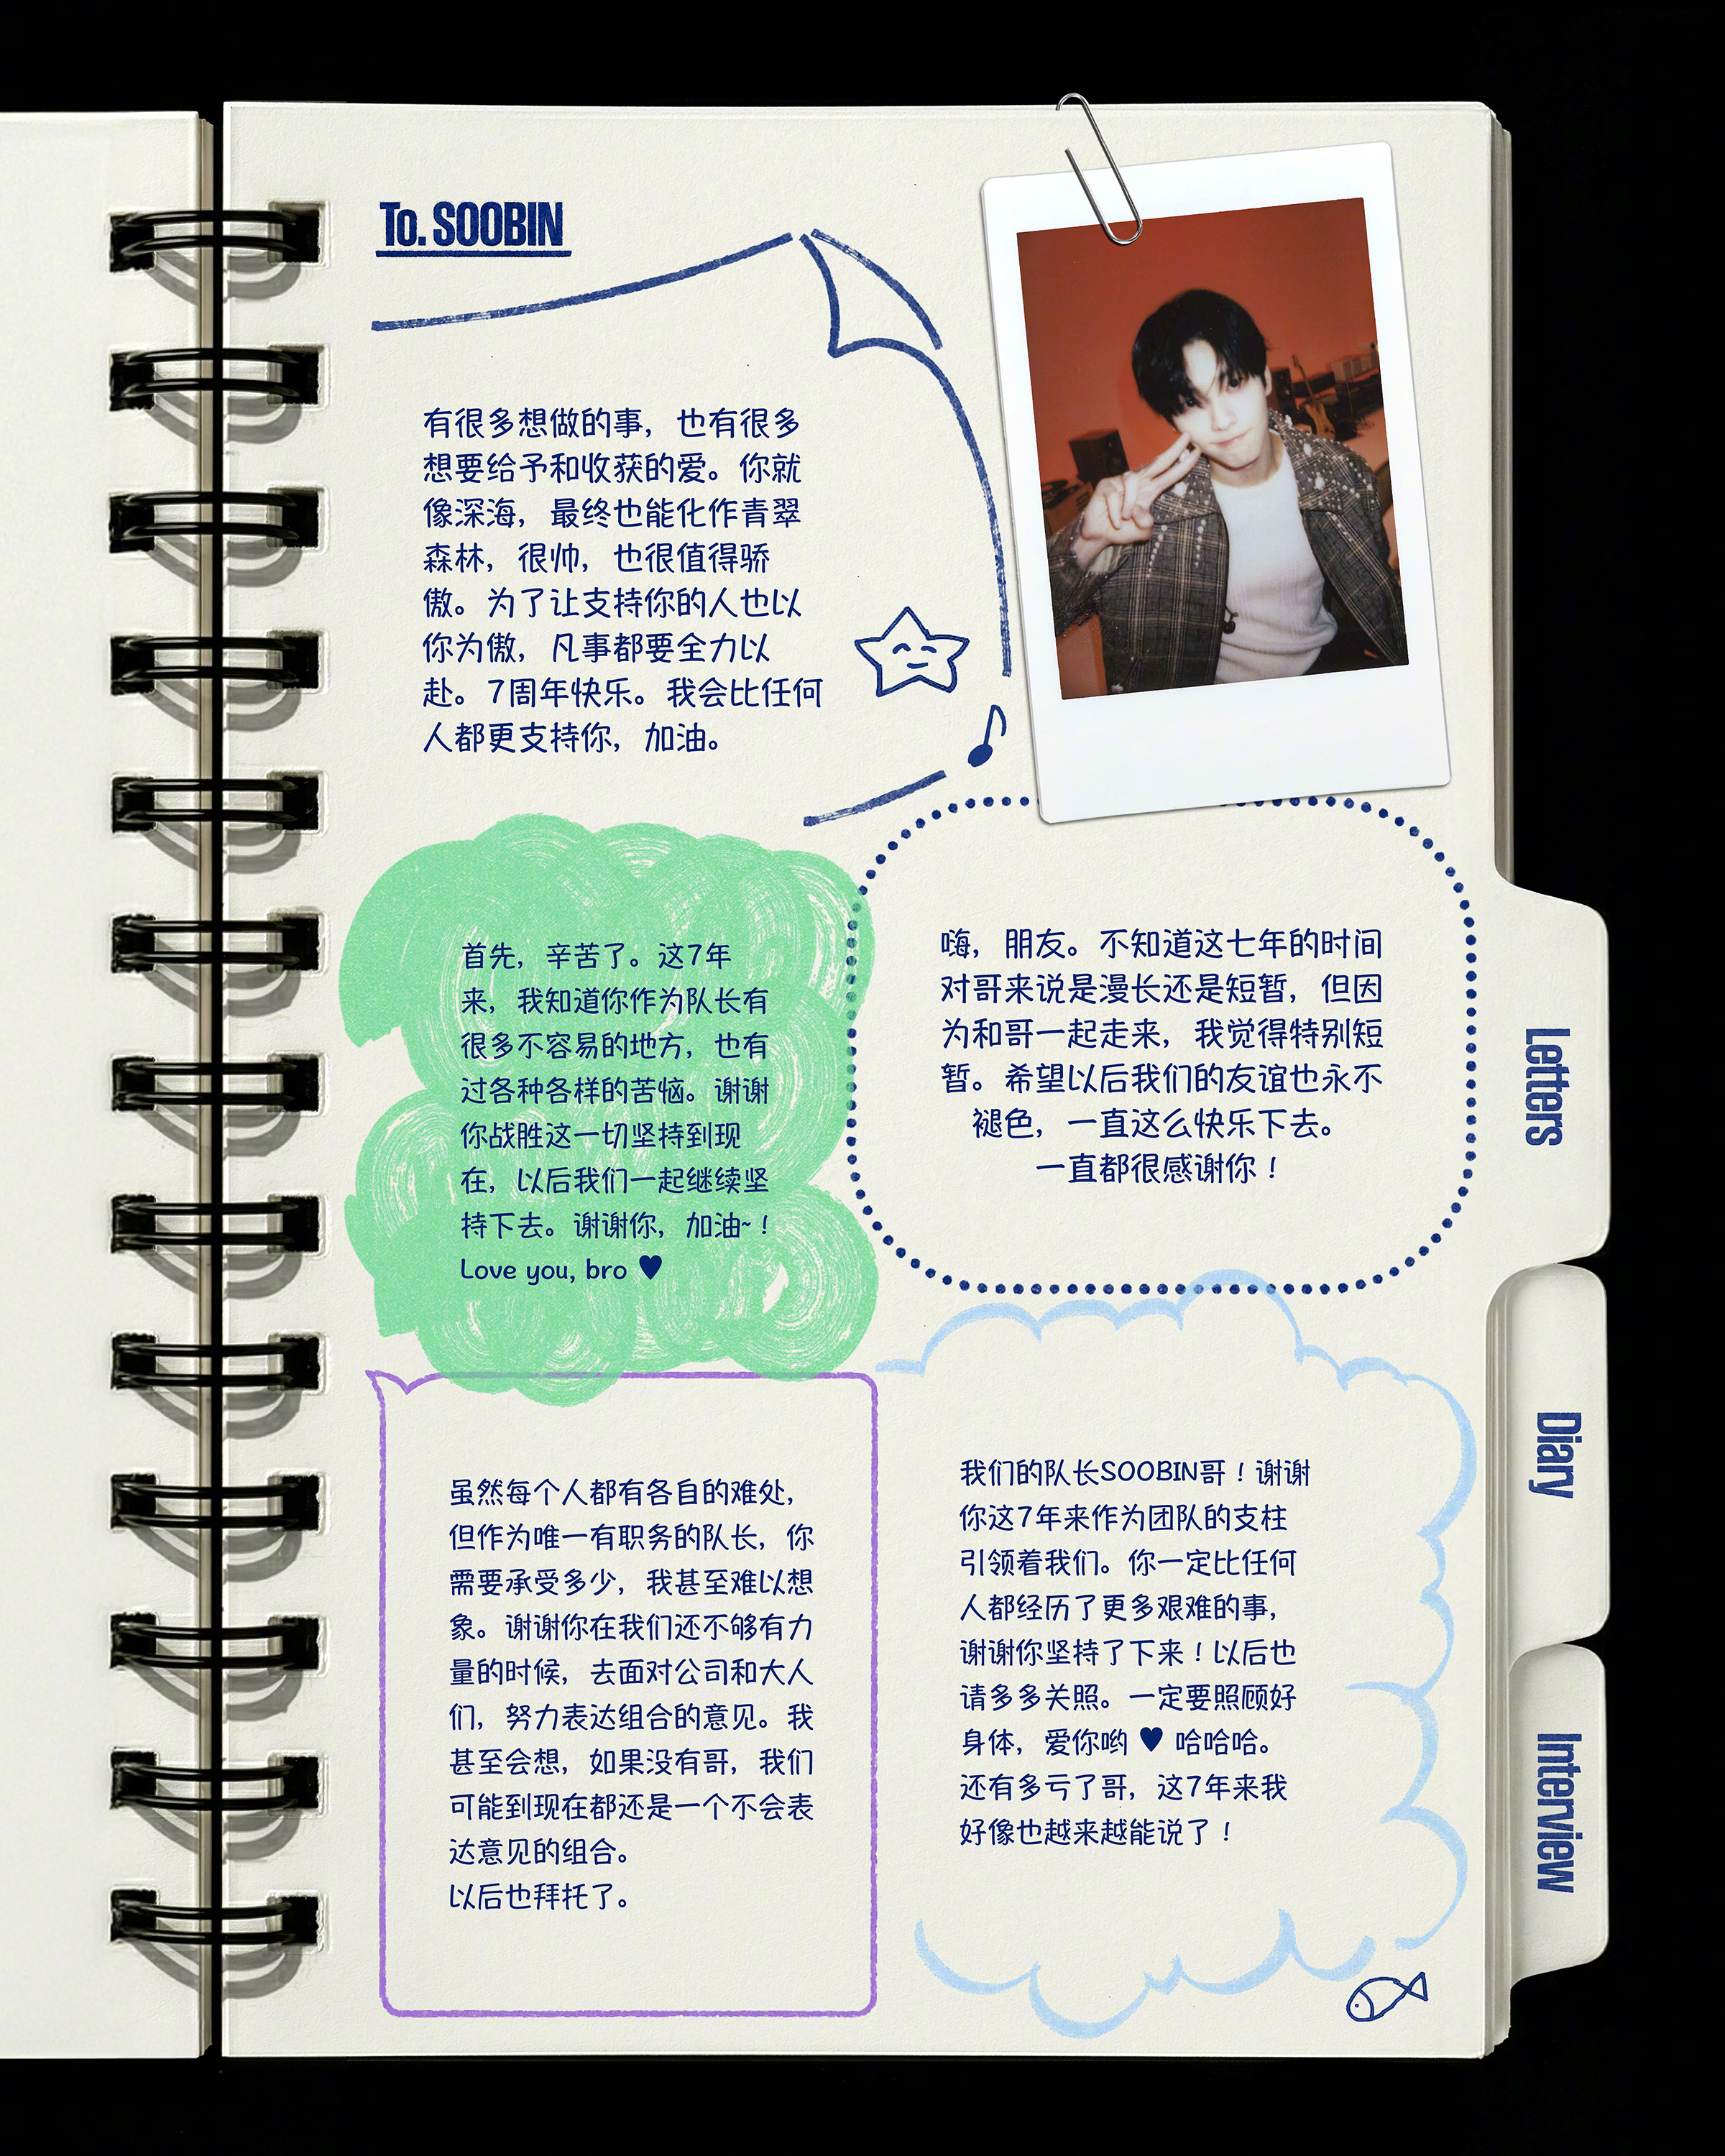 To. SOOBIN
有很多想做的事，也有很多
想要给予和收获的爱。你就
像深海，最终也能化作青翠
森林，很帅，也很值得骄
傲。为了让支持你的人也以
你为傲，凡事都要全力以
赴。7周年快乐。我会比任何
人都更支持你，加油。
首先，辛苦了。这7年
来，我知道你作为队长有
很多不容易的地方，也有
过各种各样的苦恼。谢谢
你战胜这一切坚持到现
在，以后我们一起继续坚
持下去。谢谢你，加油~！
Love you, bro ♥
嗨，朋友。不知道这七年的时间
对哥来说是漫长还是短暂，但因
为和哥一起走来，我觉得特别短
暂。希望以后我们的友谊也永不
褪色，一直这么快乐下去。
一直都很感谢你！
虽然每个人都有各自的难处，
但作为唯一有职务的队长，你
需要承受多少，我甚至难以想
象。谢谢你在我们还不够有力
量的时候，去面对公司和大人
们，努力表达组合的意见。我
甚至会想，如果没有哥，我们
可能到现在都还是一个不会表
达意见的组合。
以后也拜托了。
我们的队长SOOBIN哥！谢谢
你这7年来作为团队的支柱
引领着我们。你一定比任何
人都经历了更多艰难的事，
谢谢你坚持了下来！以后也
请多多关照。一定要照顾好
身体，爱你哟 ♥ 哈哈哈。
还有多亏了哥，这7年来我
好像也越来越能说了！
Letters
Diary
Interview